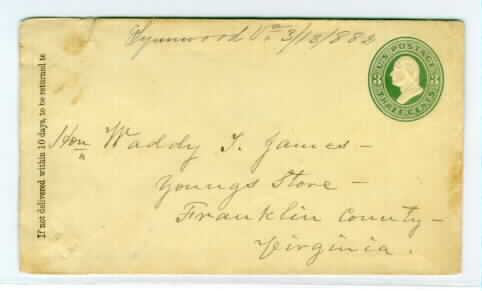 Lynnwood Va 3/13/1882
U.S. POSTAGE
THREE CENTS
If not delivered within 10 days, to be returned to
Hon Waddy T. James –
Youngs Store –
Franklin County –
Virginia.